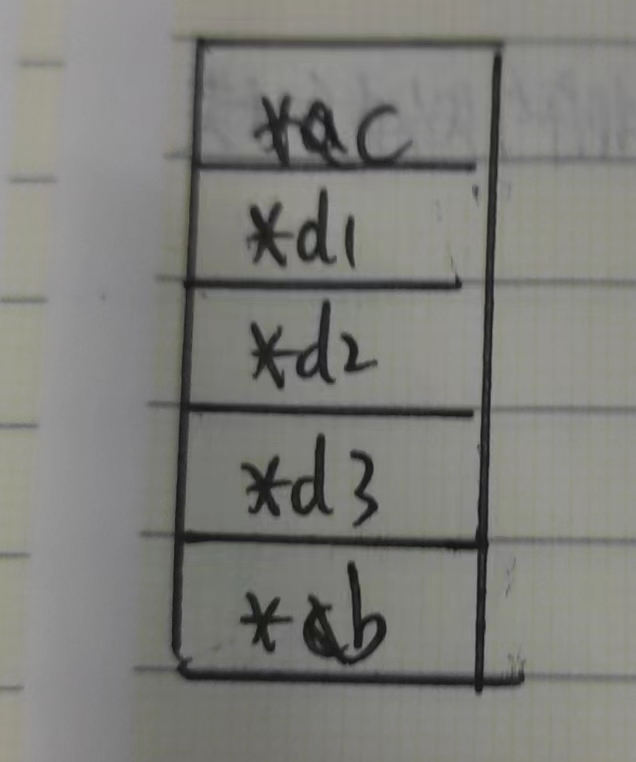 *ac
*d1
*d2
*d3
*ab